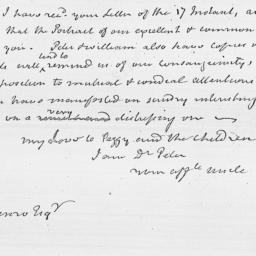 I have rec.d your Letter of the 17 Instant, an
that the Portrait of our excellent & common
you. Peter & William also have Copies
tend to
will remind us of our consanguinity,
position to mutual & cordial attentions
have manifested on sundry interesting
very
on a distressing one
my Love to Peggy and the children
I am D.r Peter
your aff.te uncle
Esq.r